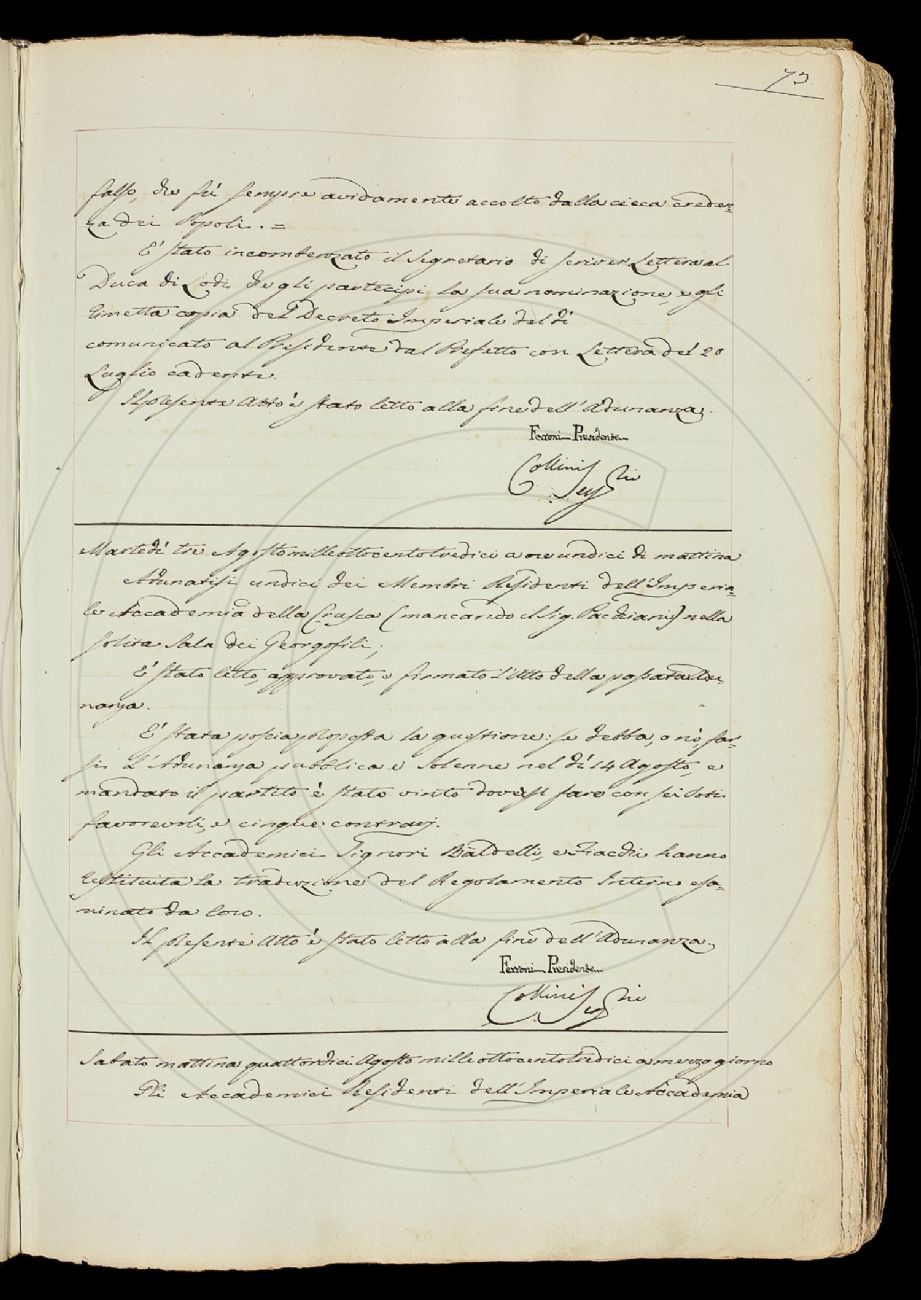 73
falso, che fù sempre avidamente accolto dalla cieca creden=
za dei Popoli. =
E' stato incombenzato il Segretario di scriver Lettera al
Duca di Lodi che gli partecipi la sua nominazione, e gli
rimetta copia del Decreto Imperiale del dì
comunicato al Presidente dal Prefetto con Lettera de' 20
Luglio cadente.
Il presente Atto è stato letto alla fine dell'Adunanza.
Ferroni Presidente
Collini Seg.rio
Martedì tre Agosto milleottocentotredici a ore undici di mattina
Adunatisi undici dei Membri Residenti dell'Imperia=
le Accademia della Crusca (mancando il Sig. Pacchiani) nella
solita Sala dei Georgofili,
E' stato letto, approvato, e firmato l'Atto della passata Adu=
nanza.
E' stata poscia proposta la questione: se debba, o nò, far=
si l'Adunanza pubblica e solenne nel dì 14 Agosto, e
mandato il partito è stato vinto doversi fare con sei Voti
favorevoli, e cinque contrarj.
Gli Accademici Signori Baldelli, e Fiacchi hanno
restituita la traduzione del Regolamento Interno esa=
minato da loro.
Il presente Atto è stato letto alla fine dell'Adunanza.
Ferroni Presidente
Collini Seg.rio
Sabato mattina quattordici Agosto milleottocentotredici a mezzo giorno
Gli Accademici Residenti dell'Imperiale Accademia